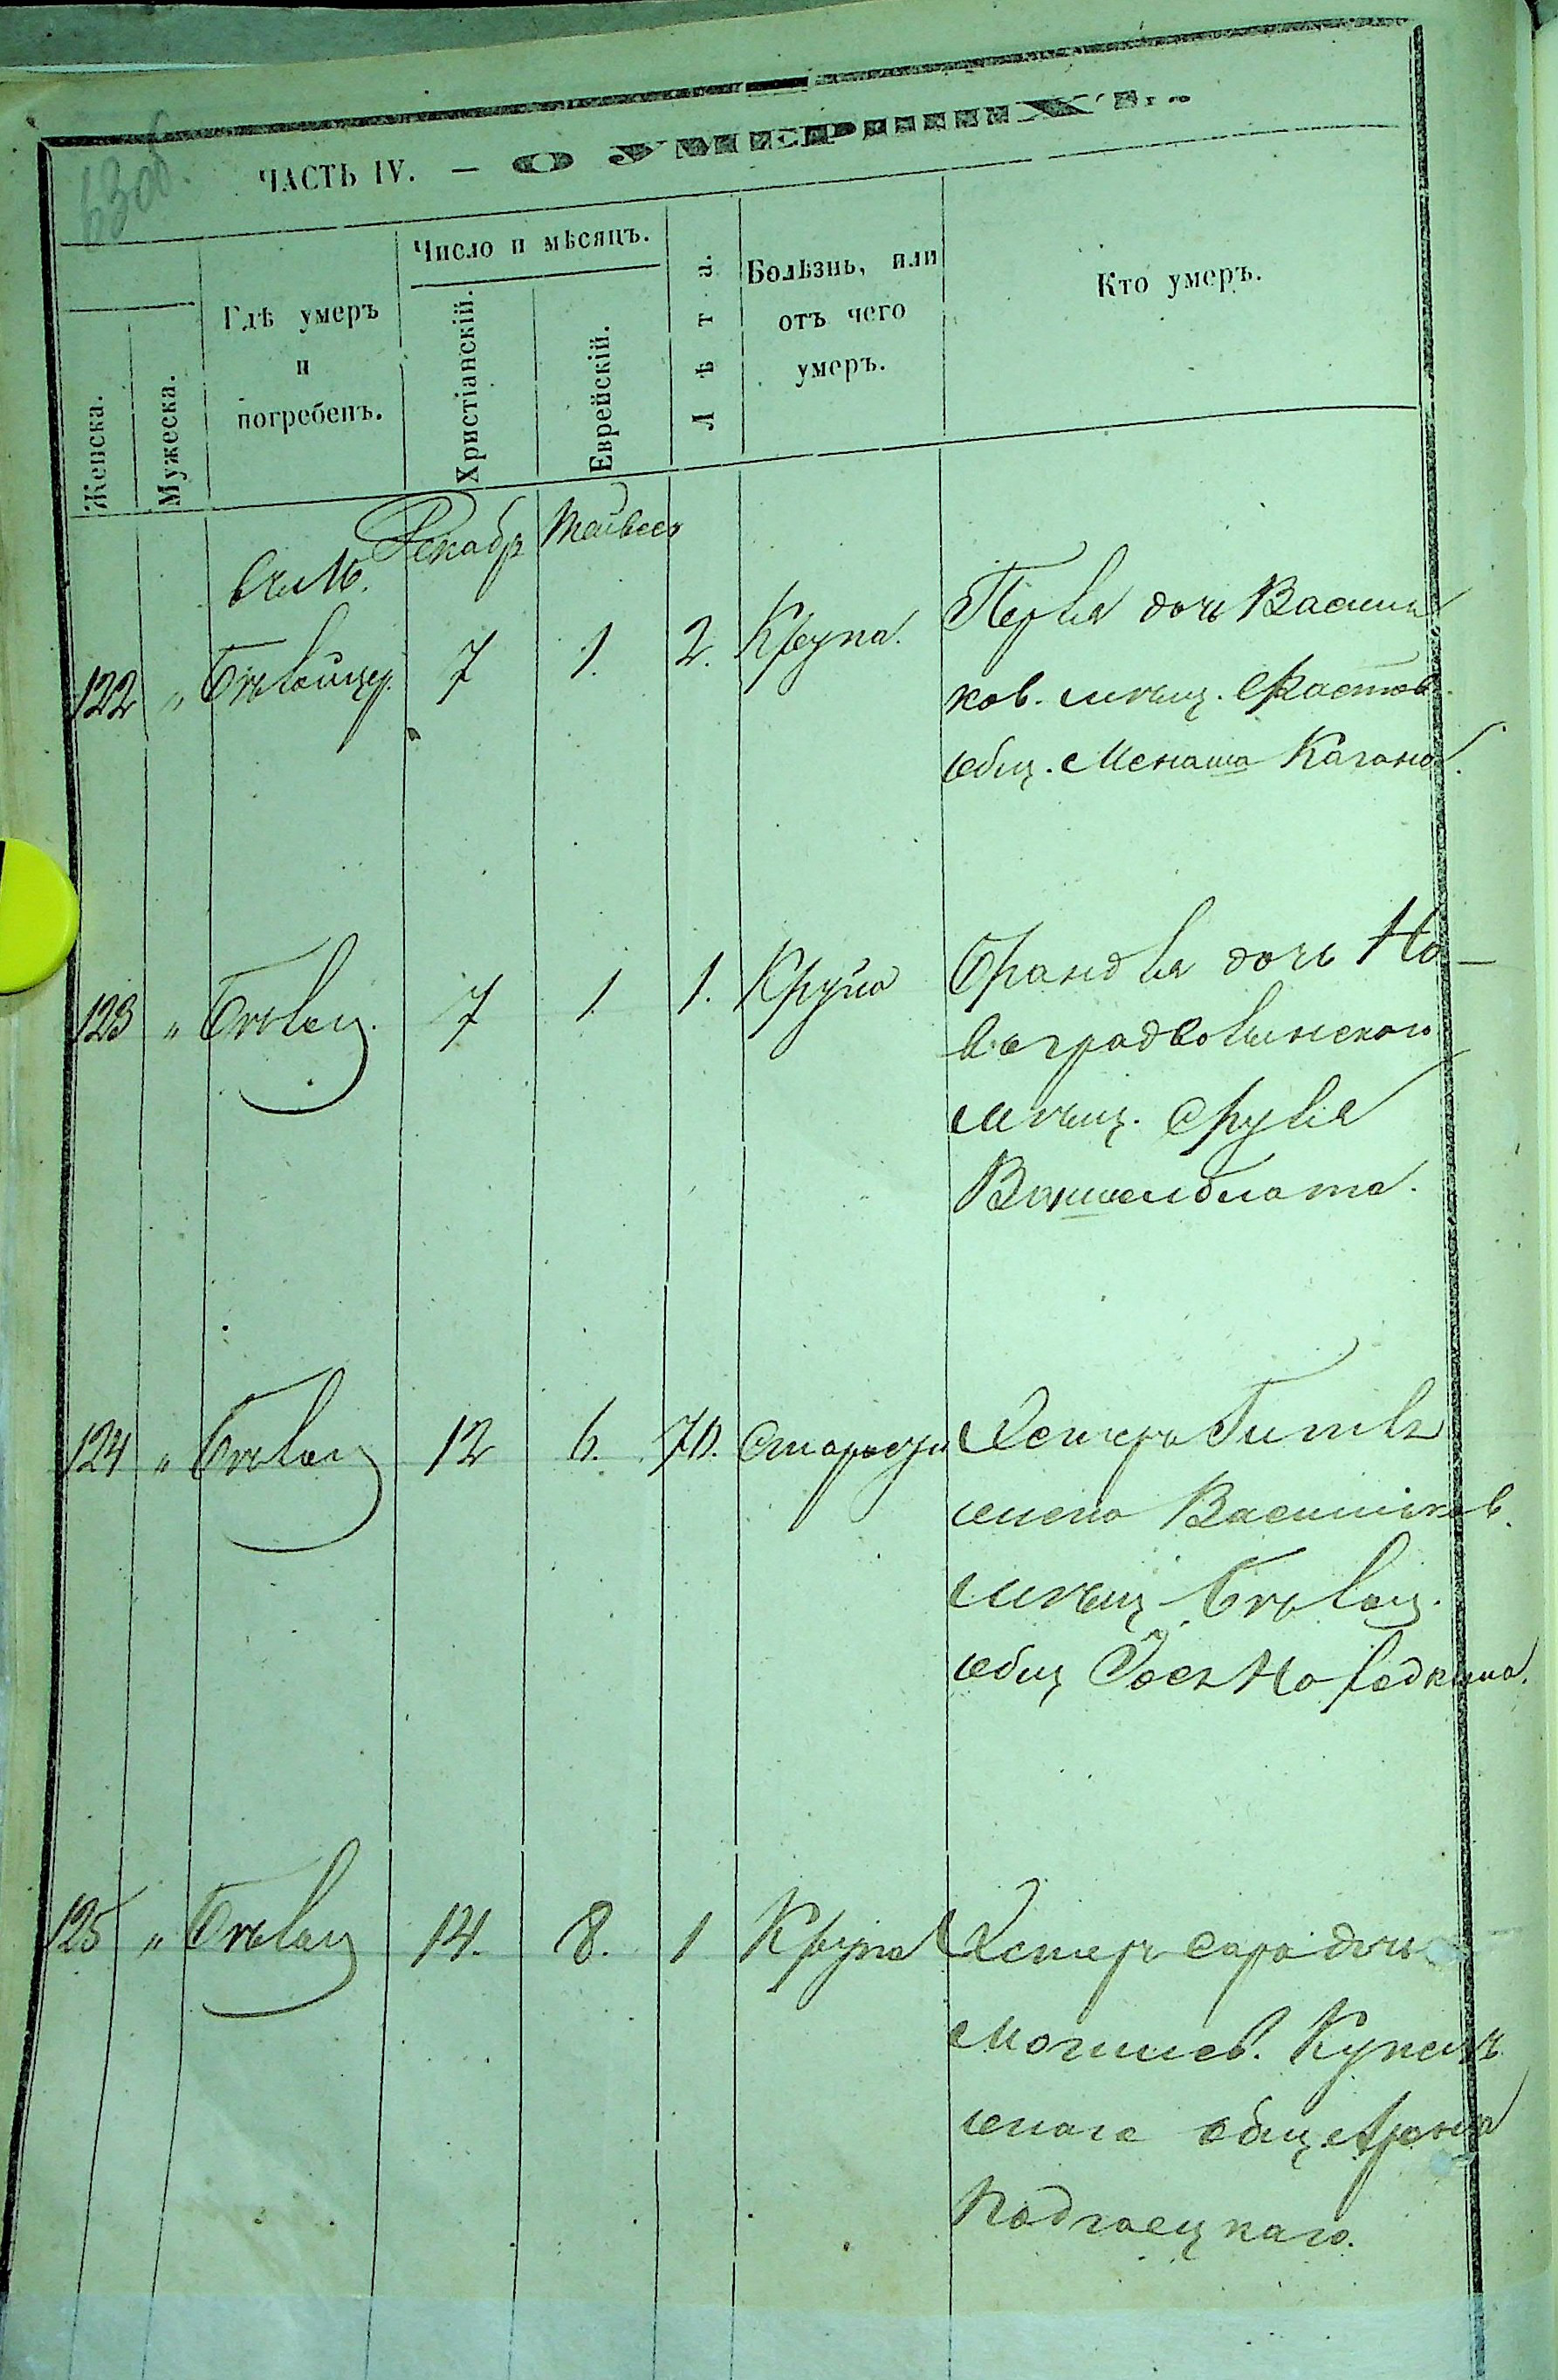 63об.
ЧАСТЬ IV. — О УМЕРШИХЪ.
Женска.
Мужеска.
Гдѣ умеръ
и
погребенъ.
Число и мѣсяцъ.
Христіанскій.
Еврейскій.
Лѣта.
Болѣзнь, или
отъ чего
умеръ.
Кто умеръ.
Декабр Тейвесъ
в м.
122 „ Бѣлойцер. 7 1. 2. Крупа. Перля дочь Васильков. мѣщ. Фастов.
общ. Менаша Кагана.
123 „ Бѣлоц. 7 1 1. Крупа Брандля дочь Но-
воградволынскаго
мѣщ. Сруля
Ваксенблата.
124 „ Бѣлоц 12 6. 70. Старости Хестеръ Гитля
жена Васильков.
мѣщ Бѣлоц.
общ Іося Народкина.
125 „ Бѣлоц 14. 8. 1 Крупа Хестеръ Сара дочь
Могилев. Купече
скаго общ Арона
Подгаецкаго.